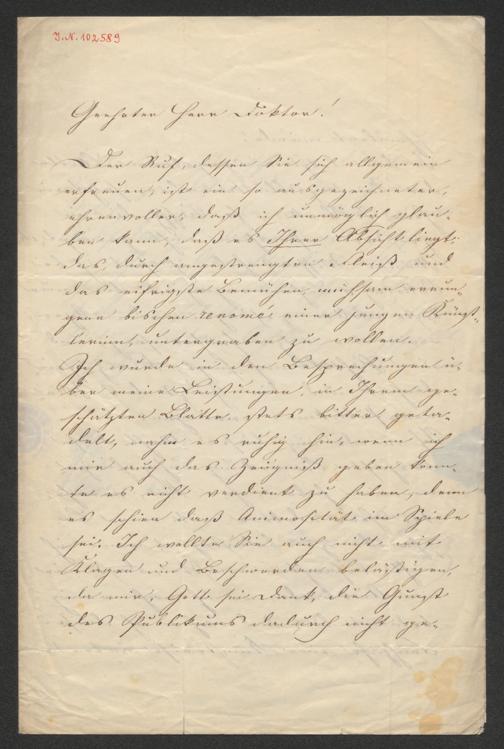 J.N. 102589
Geehrter Herr Doktor!
Der Ruf, dessen Sie sich allgemein
erfreuen, ist ein so ausgezeichneter,
ehrenvoller, daß ich unmöglich glau-
ben kann, daß es Ihrer Absicht liegt,
das, durch angestrengten Fleiß und
das eifrigste Bemühen, mühsam errun-
gene bischen renomé einer jungen Künst-
lerin, untergraben zu wollen.
Ich wurde in den Besprechungen ü-
ber meine Leistungen, in Ihrem ge-
schätzten Blatte stets bitter geta-
delt, nahm es ruhig hin, wenn ich
mir auch das Zeugniß geben konn-
te es nicht verdient zu haben, denn
es schien daß Animosität im Spiele
sei. Ich wollte Sie auch nicht mit
Klagen und Beschwerden belästigen,
da mir, Gott sei Dank, die Gunst
des Publikums dadurch nicht ge-